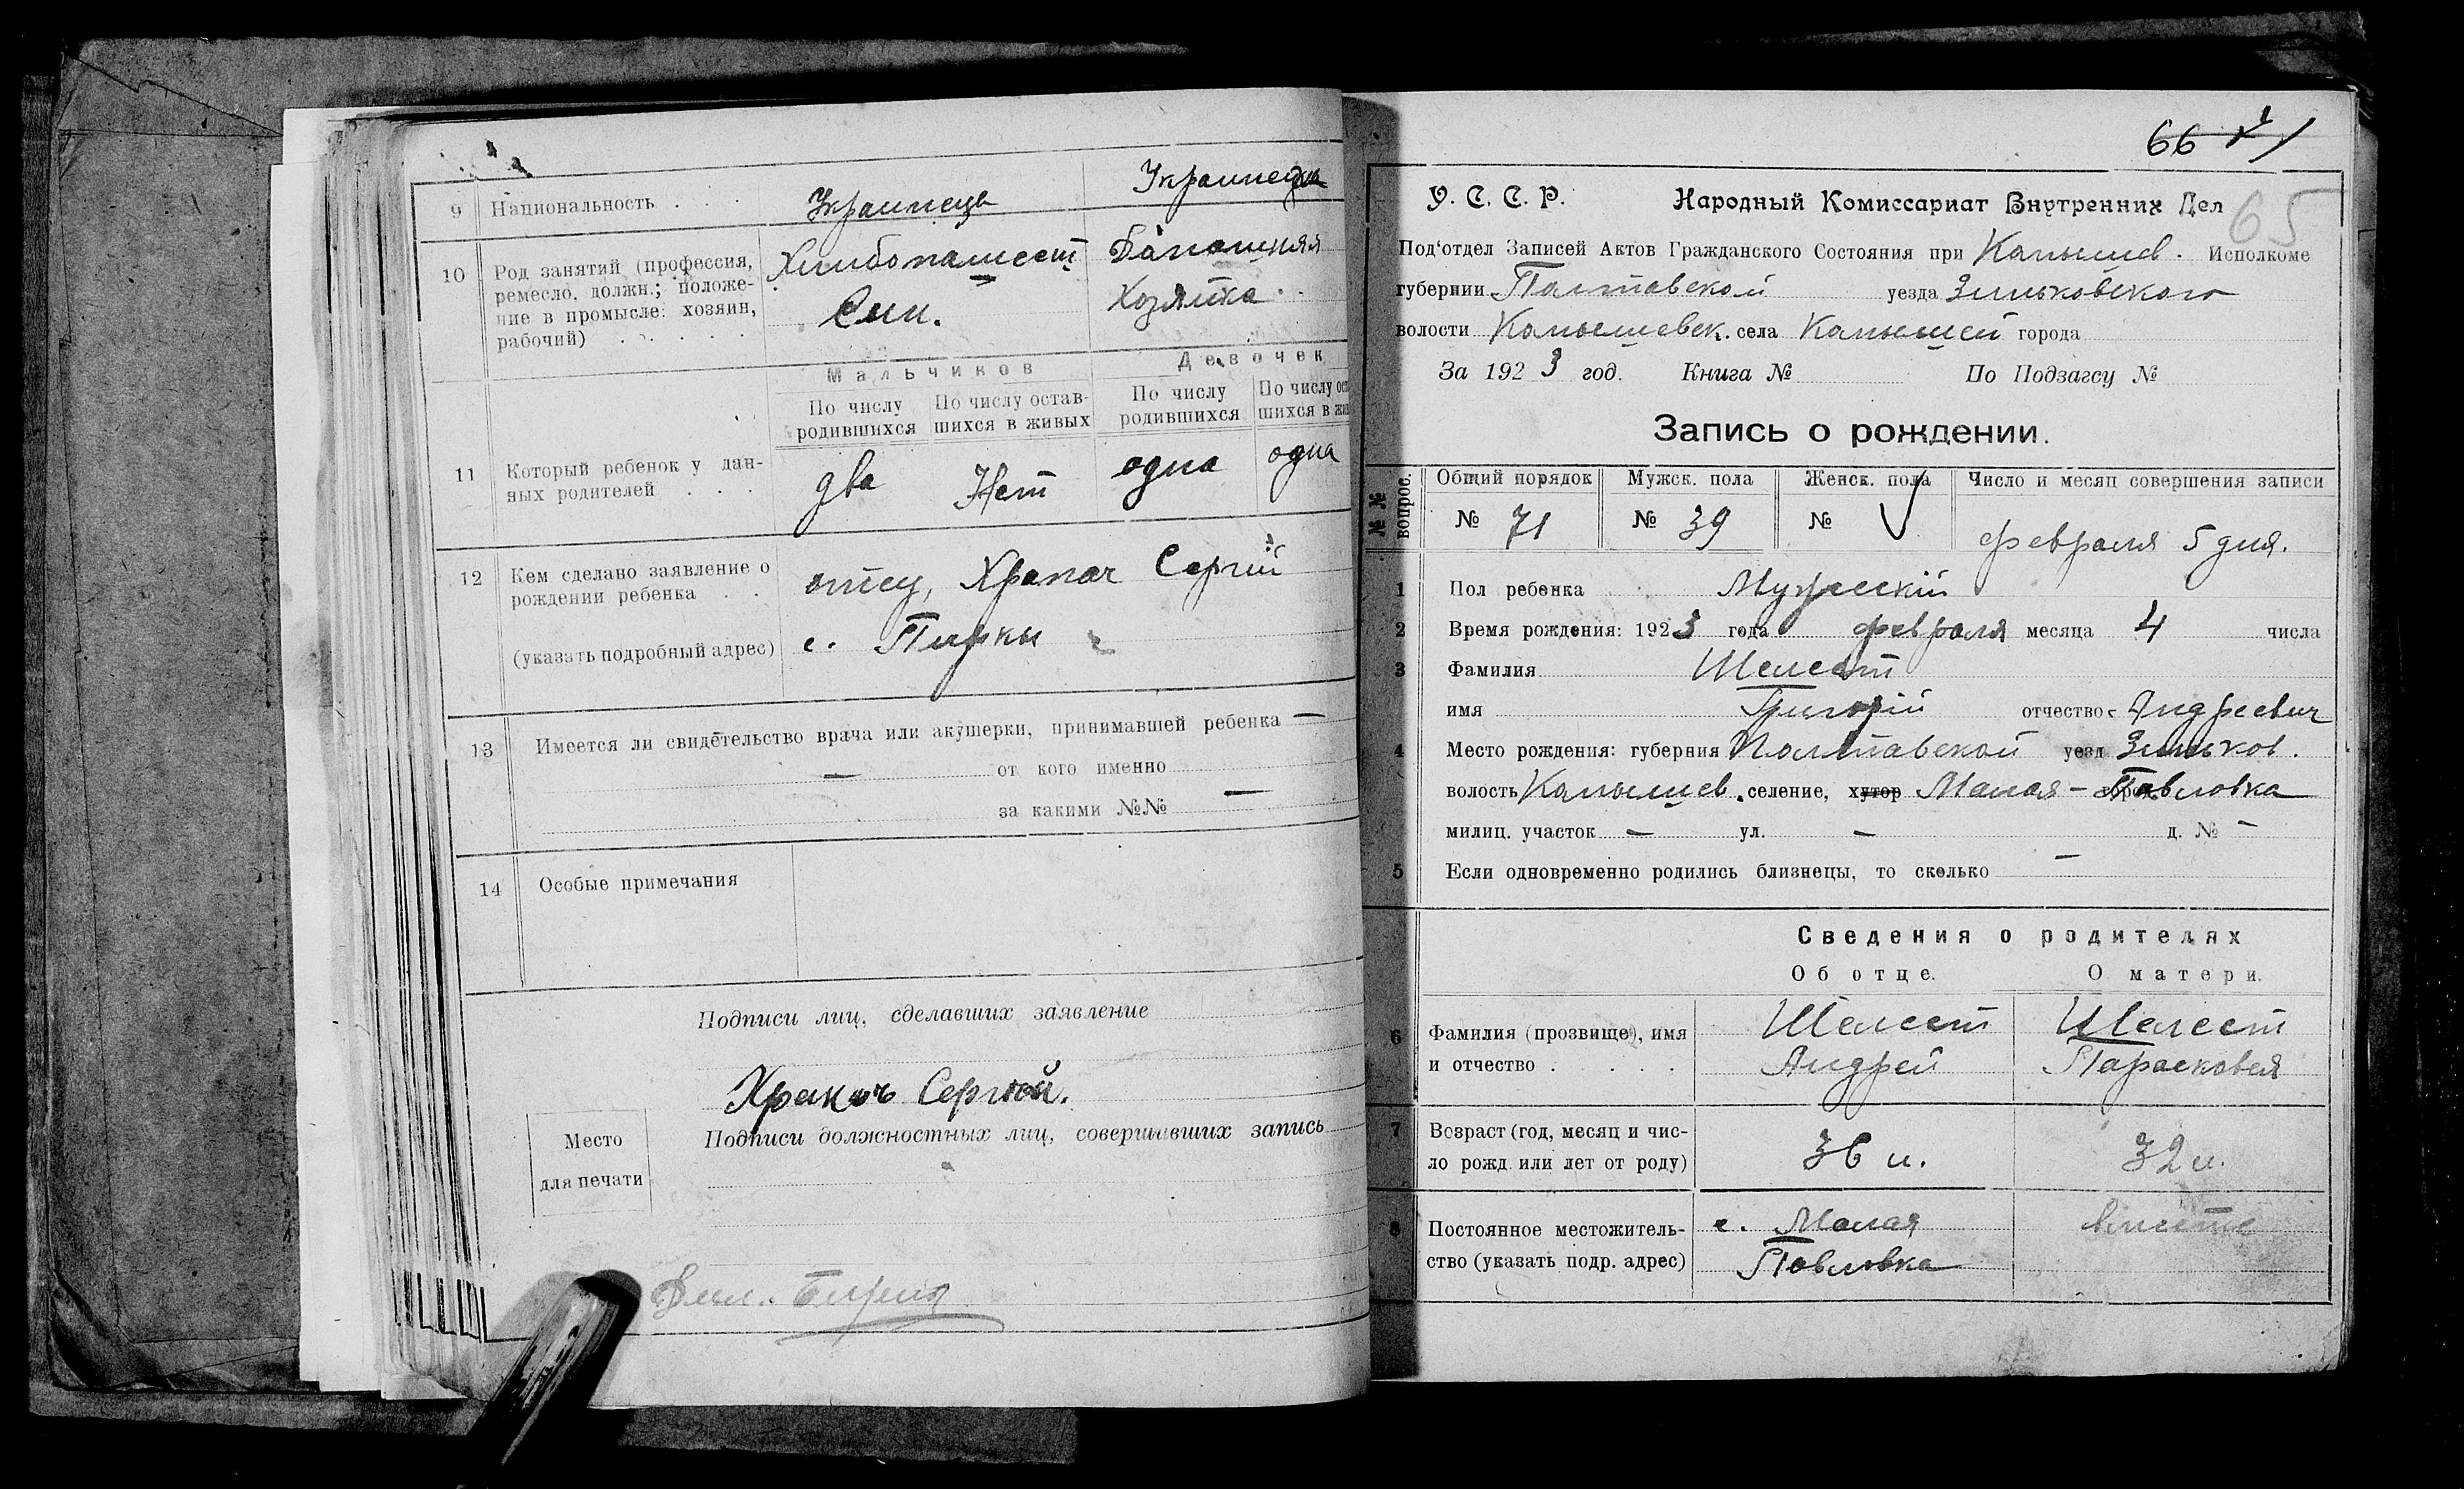 9 Национальность . . . Украинець Украинецка
10 Род занятий (профессия, Домашняя
ремесло, должн.; положе- Хозяйка
ние в промысле: хозяин, Син.
рабочий) . . . . .
Мальчиков Девочек
По числу По числу остав- По числу По числу ост
родившихся шихся в живых родившихся шихся в жи
11 Который ребенок у дан- два Нет одна одна
ных родителей . . .
12 Кем сделано заявление о отец, Храпач Сергій
рождении ребенка . .
(указать подробный адрес) с. Пирки
13 Имеется ли свидетельство врача или акушерки, принимавшей ребенка —
— от кого именно
за какими №№ —
14 Особые примечания
Подписи лиц, сделавших заявление
Храпач Сергій.
Подписи должностных лиц, совершивших запись
Место
для печати
66
65
У. С. С. Р. Народный Комиссариат Внутренних Дел
Под'отдел Записей Актов Гражданского Состояния при Капышев. Исполкоме
губернии Полтавской уезда Зиньковского
волости Капышевск. села Капышей города
За 1923 год. Книга № По Подзагсу №
Запись о рождении.
№№ вопрос. Общий порядок Мужск. пола Женск. пола Число и месяц совершения записи
№ 71 № 39 № февраля 5 дня.
1 Пол ребенка Мужескій
2 Время рождения: 1923 года февраля месяца 4 числа
3 Фамилия Шелест
имя Григорій отчество Андреевич
4 Место рождения: губерния Полтавской уезд Зиньков.
волость Капышев. селение, хутор Малая-Павловка
милиц. участок — ул. — д. № —
5 Если одновременно родились близнецы, то сколько —
Сведения о родителях
Об отце. О матери.
6 Фамилия (прозвище), имя Шелест Шелест
и отчество . . . . Андрей Парасковея
7 Возраст (год, месяц и чис-
ло рожд. или лет от роду) 36 л. 32 л.
8 Постоянное местожитель- с. Малая вместе
ство (указать подр. адрес) Павловка